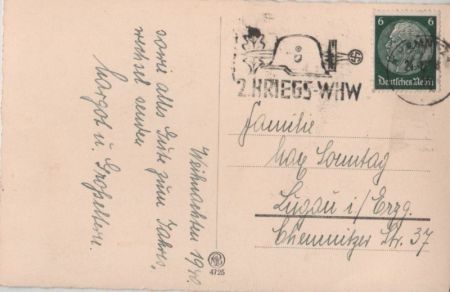 Weihnachten 1940.
sowie alles Gute zum Jahres-
wechsel senden
Margot u. Großeltern.
2. KRIEGS-WHW
6 6
Deutsches Reich
Familie
Max Sonntag
Lugau i/Erzg.
Chemnitzer Str. 37
4725